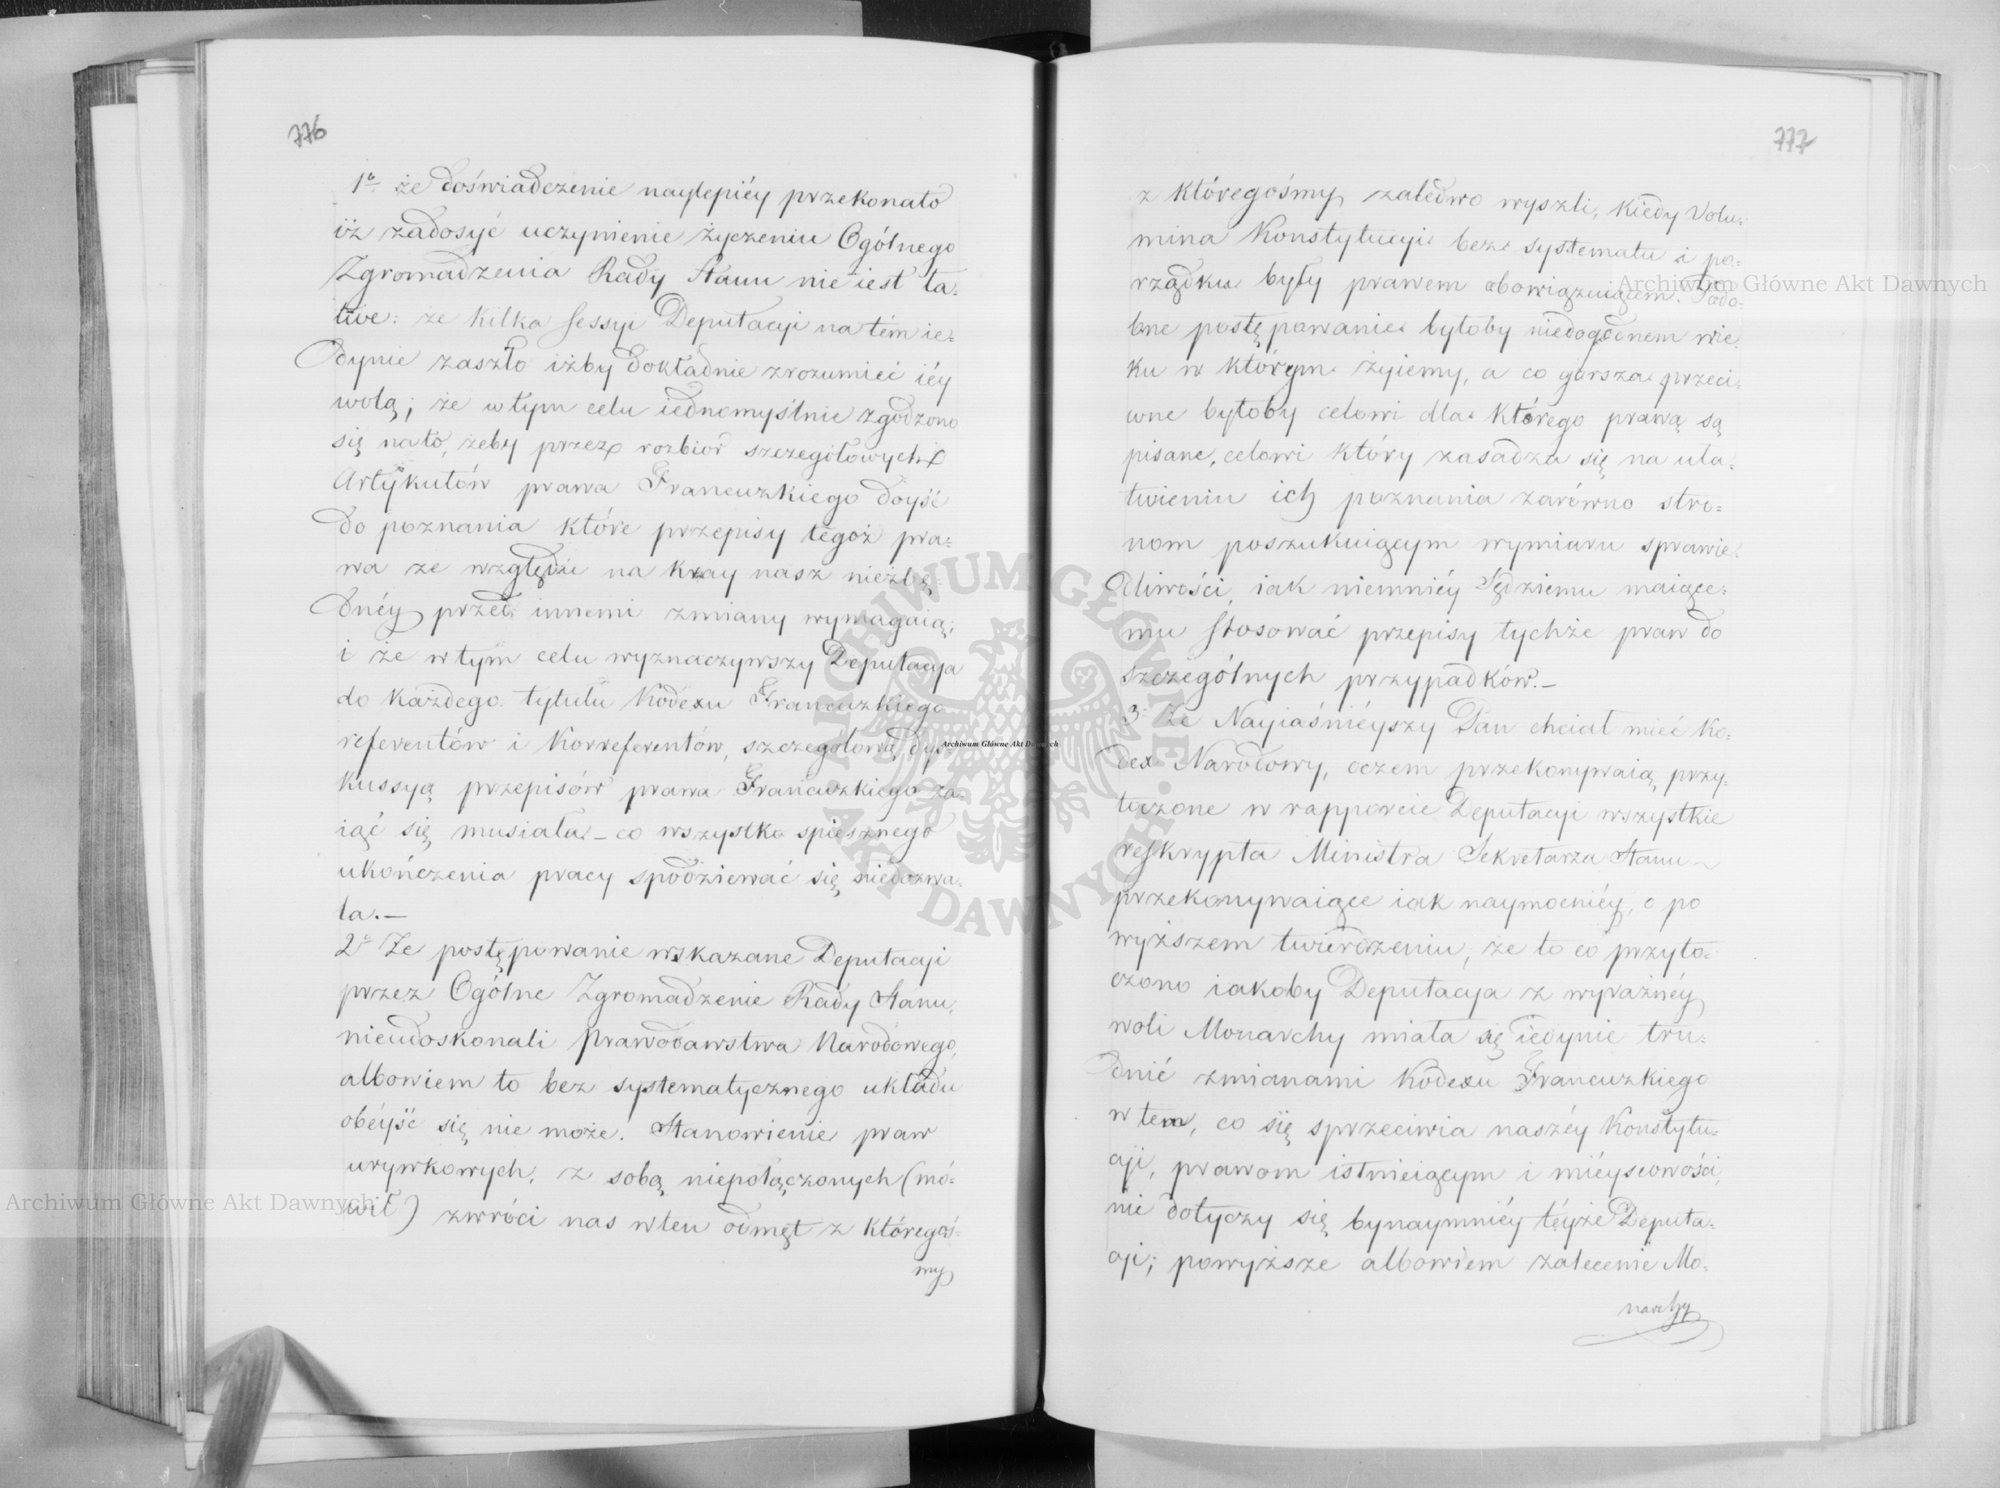 776
1º że doświadczenie naylepiéy przekonało
iż zadosyć uczynienie życzeniu Ogólnego
Zgromadzenia Rady Stanu nie iest ła-
twe: że kilka Sessyi Deputacyi na tém ie-
dynie zaszło iżby dokładnie zrozumieć iéy
wolą; że w tym celu iednomyślnie zgodzono
się na to, żeby przez rozbiór szczegółowych
Artykułów prawa Francuzkiego doyść
do poznania które przepisy tegoż pra-
wa ze względu na kray nasz niezbę-
dnéy przed innemi zmiany wymagaią;
i że w tym celu wyznaczywszy Deputacya
do każdego tytułu Kodexu Francuzkiego
referentów i Korreferentów, szczegółową dys-
kussyą przepisów prawa Francuzkiego za-
iąć się musiała – co wszystko spiesznego
ukończenia pracy spodziewać się niedozwa-
la. –
2º Że postępowanie wskazane Deputacyi
przez Ogólne Zgromadzenie Rady Stanu,
nieudoskonali prawodawstwa Narodowego,
albowiem to bez systematycznego układu
obéyść się nie może. Stanowienie praw
urywkowych, z sobą niepołączonych (mó-
wił) zwróci nas w ten odmęt z któregoś-
my
777
z któregośmy zaledwo wyszli, kiedy Volu-
mina Konstytucyi bez systematu i po-
rządku były prawem obowiązuiącem. Podo-
bne postępowanie byłoby niedogodnem wie-
ku w którym żyiemy, a co gorsza przeci-
wne byłoby celowi dla którego prawa są
pisane, celowi który zasadza się na uła-
twieniu ich poznania zarówno stro-
nom poszukuiącym wymiaru sprawie-
dliwości, iak niemniéy Sędziemu maiące-
mu stosować przepisy tychże praw do
szczególnych przypadków. –
3º Że Nayiaśnieyszy Pan chciał mieć Ko-
dex Narodowy, o czem przekonywaią przy-
toczone w rapporcie Deputacyi wszystkie
reskrypta Ministra Sekretarza Stanu
przekonywaiące iak naymocniéy, o po
wyższem twierdzeniu, że to co przyto-
czono iakoby Deputacya z wyraźnéy
woli Monarchy miała się iedynie tru-
dnić zmianami Kodexu Francuzkiego
w tem, co się sprzeciwia naszéy Konstytu-
cyi, prawom istnieiącym i mieyscowości,
nie dotyczy się bynaymniéy téyże Deputa-
cyi; powyższe albowiem zalecenie Mo-
narchy
Archiwum Główne Akt Dawnych
Archiwum Główne Akt Dawnych
Archiwum Główne Akt Dawnych
ARCHIWUM GŁÓWNE AKT DAWNYCH